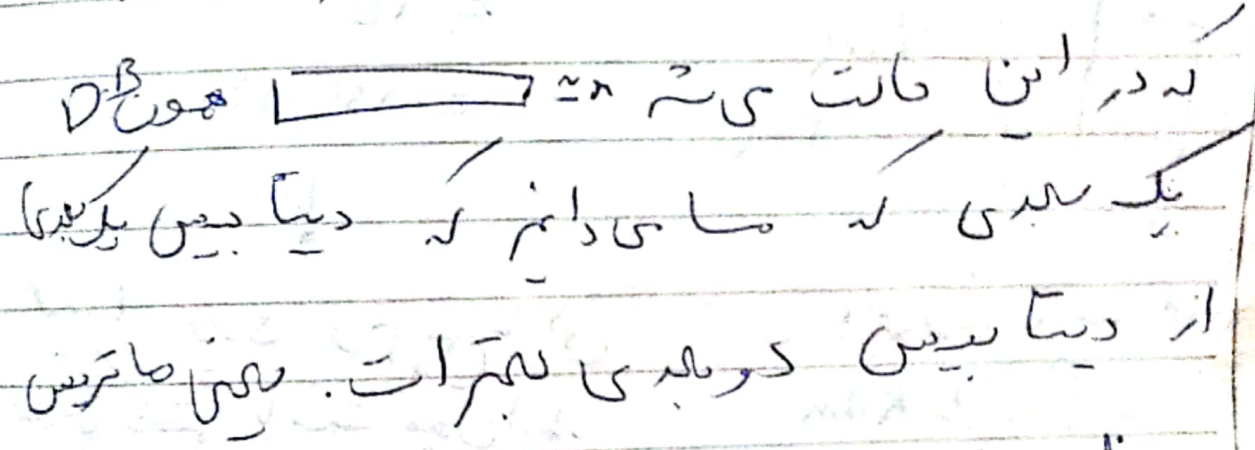 که در این حالت می‌شه n = همون DB
یک بعدی که ما می‌دانیم که دیتا بیس یک بعدی
از دیتا بیس دو بعدی بهتر است. یعنی ماتریس